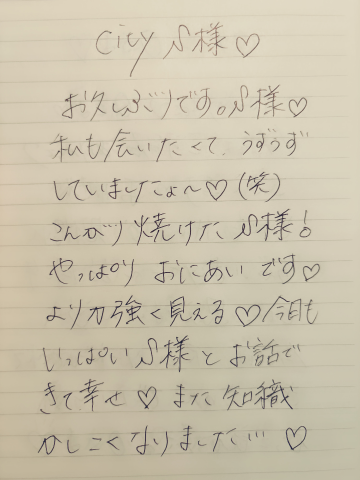 City S様♡
お久しぶりです。S様♡
私も会いたくて、うずうず
していましたょ〜♡(笑)
こんがり焼けたS様!
やっぱり おにあいです♡
より力強く見える♡今日も
いっぱいS様とお話で
きて幸せ♡また知識
かしこくなりました…♡